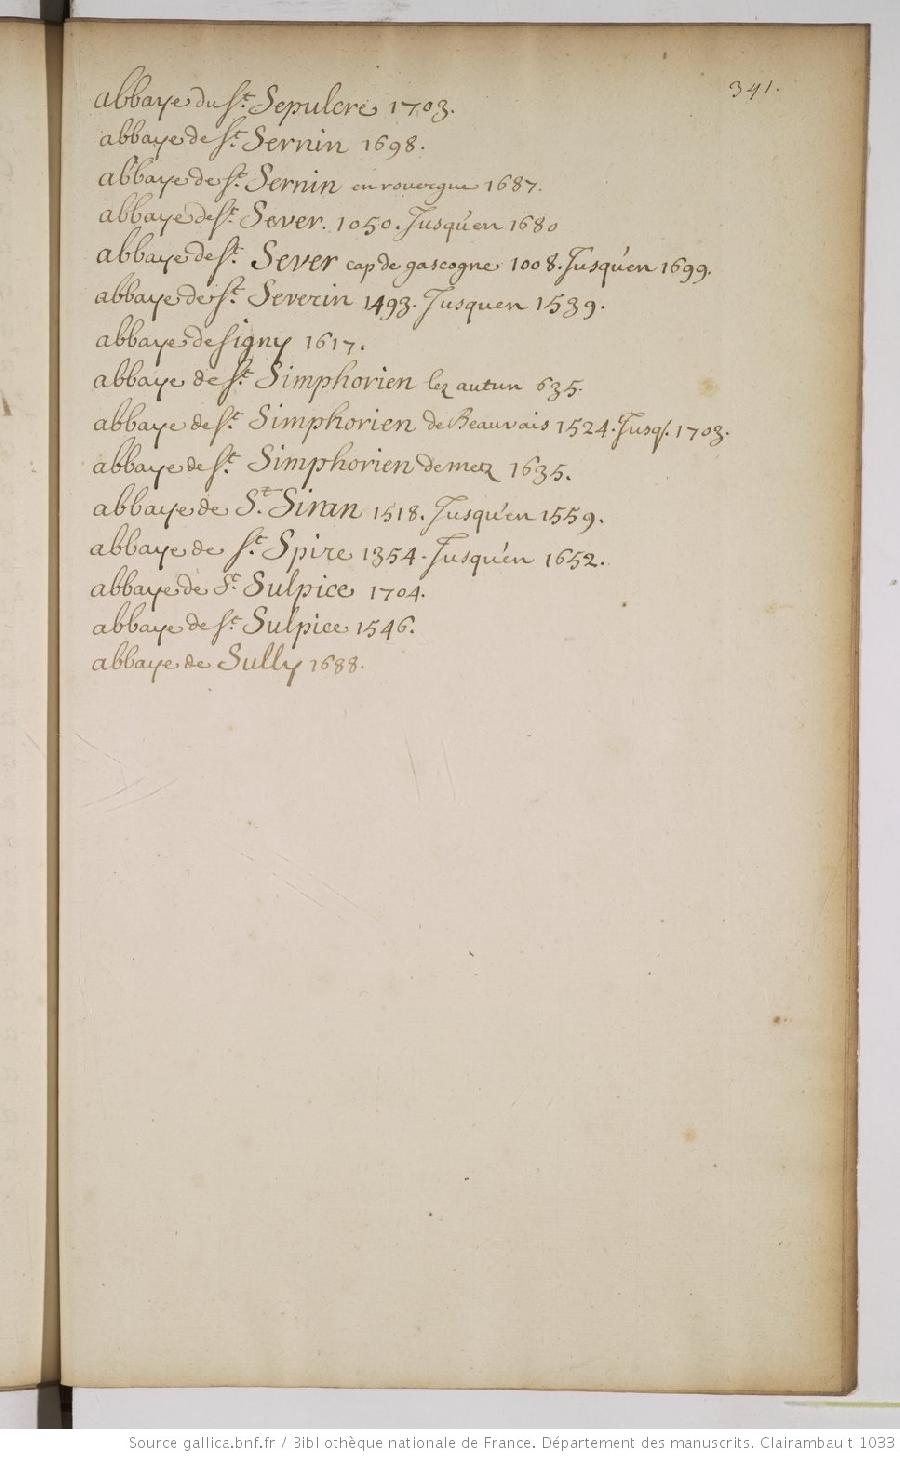 341.
abbaye du St. Sepulcre 1703.
abbaye de St. Sernin 1698.
abbaye de St. Sernin en rouergue 1687.
abbaye de St. Sever. 1050. Jusqu'en 1680
abbaye de St. Sever cap de gascogne 1008. Jusqu'en 1699.
abbaye de St. Severin 1493. Jusquen 1539.
abbaye de signy 1617.
abbaye de St. Simphorien lez autun 635.
abbaye de St. Simphorien de Beauvais 1524. Jusq. 1703.
abbaye de St. Simphorien de metz 1635.
abbaye de St. Siran 1518. Jusqu'en 1559.
abbaye de St. Spire 1354. Jusqu'en 1652.
abbaye de St. Sulpice 1704.
abbaye de St. Sulpice 1546.
abbaye de Sully 1688.
Source gallica.bnf.fr / Bibliothèque nationale de France. Département des manuscrits. Clairambault 1033